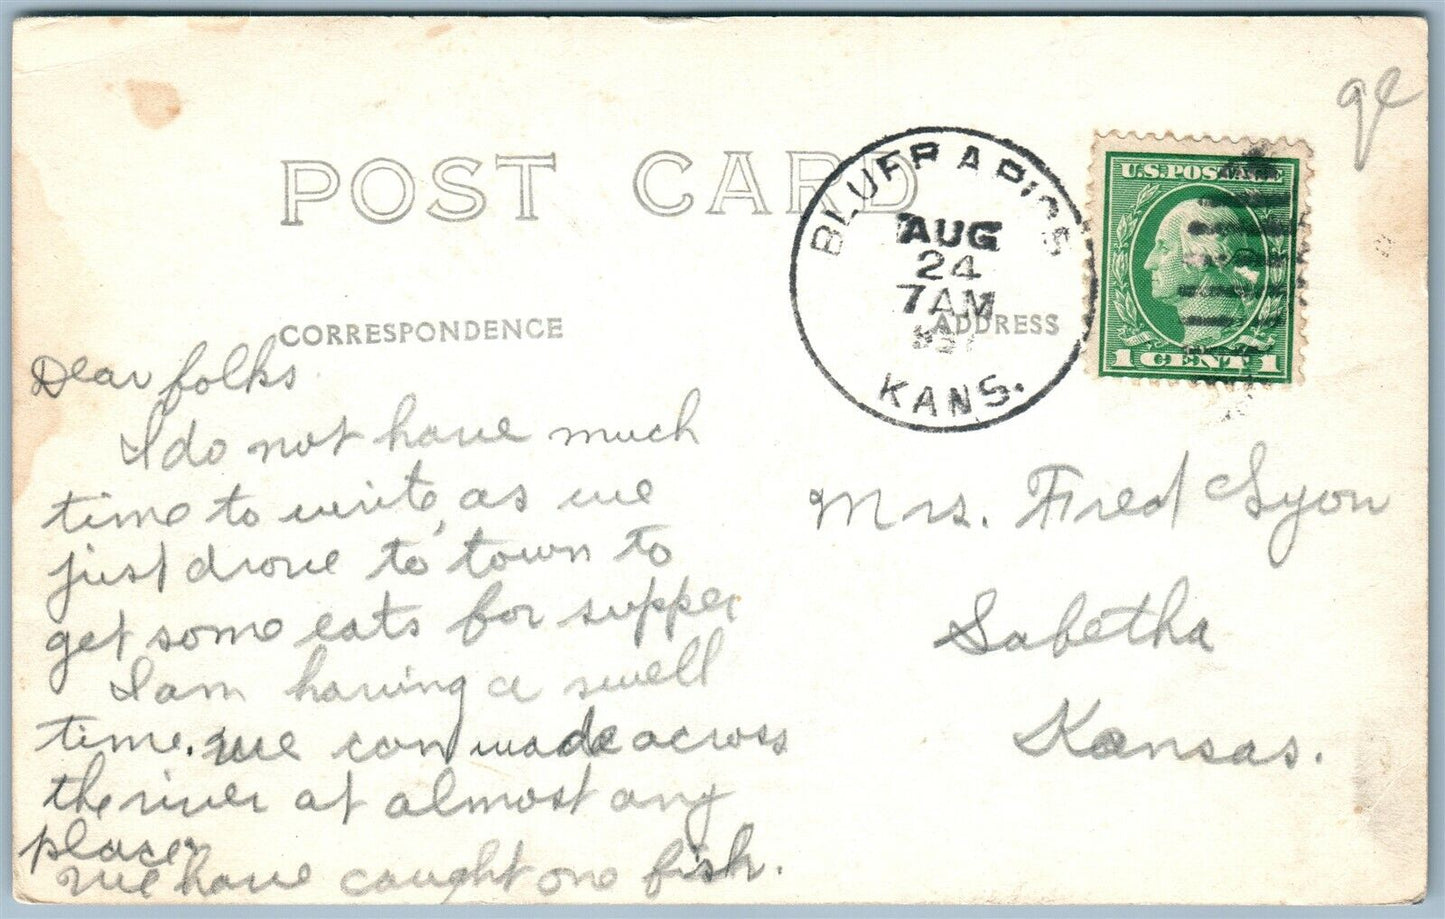 ge
POST CARD
BLUFF RAPIDS
AUG
24
7 AM
KANS.
U.S. POSTAGE
1 CENT 1
CORRESPONDENCE
ADDRESS
Dear folks
I do not have much
time to write, as we
just drove to town to
get some eats for supper
I am having a swell
time. We can wade across
the river at almost any
place.
We have caught one fish.
Mrs. Fred Lyon
Sabetha
Kansas.